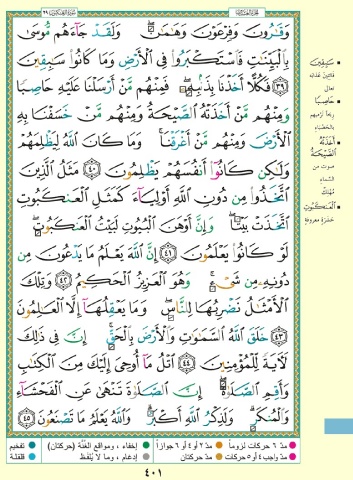 وَقَٰرُونَ وَفِرْعَوْنَ وَهَٰمَٰنَ ۖ وَلَقَدْ جَآءَهُم مُّوسَىٰ
بِٱلْبَيِّنَٰتِ فَٱسْتَكْبَرُوا۟ فِى ٱلْأَرْضِ وَمَا كَانُوا۟ سَٰبِقِينَ
٣٩ فَكُلًّا أَخَذْنَا بِذَنۢبِهِۦ ۖ فَمِنْهُم مَّنْ أَرْسَلْنَا عَلَيْهِ حَاصِبًا
وَمِنْهُم مَّنْ أَخَذَتْهُ ٱلصَّيْحَةُ وَمِنْهُم مَّنْ خَسَفْنَا بِهِ
ٱلْأَرْضَ وَمِنْهُم مَّنْ أَغْرَقْنَا ۚ وَمَا كَانَ ٱللَّهُ لِيَظْلِمَهُمْ
وَلَٰكِن كَانُوٓا۟ أَنفُسَهُمْ يَظْلِمُونَ ٤٠ مَثَلُ ٱلَّذِينَ
ٱتَّخَذُوا۟ مِن دُونِ ٱللَّهِ أَوْلِيَآءَ كَمَثَلِ ٱلْعَنكَبُوتِ
ٱتَّخَذَتْ بَيْتًا ۖ وَإِنَّ أَوْهَنَ ٱلْبُيُوتِ لَبَيْتُ ٱلْعَنكَبُوتِ ۖ
لَوْ كَانُوا۟ يَعْلَمُونَ ٤١ إِنَّ ٱللَّهَ يَعْلَمُ مَا يَدْعُونَ مِن
دُونِهِۦ مِن شَىْءٍ ۚ وَهُوَ ٱلْعَزِيزُ ٱلْحَكِيمُ ٤٢ وَتِلْكَ
ٱلْأَمْثَٰلُ نَضْرِبُهَا لِلنَّاسِ ۖ وَمَا يَعْقِلُهَآ إِلَّا ٱلْعَٰلِمُونَ
٤٣ خَلَقَ ٱللَّهُ ٱلسَّمَٰوَٰتِ وَٱلْأَرْضَ بِٱلْحَقِّ ۚ إِنَّ فِى ذَٰلِكَ
لَءَايَةً لِّلْمُؤْمِنِينَ ٤٤ ٱتْلُ مَآ أُوحِىَ إِلَيْكَ مِنَ ٱلْكِتَٰبِ
وَأَقِمِ ٱلصَّلَوٰةَ ۖ إِنَّ ٱلصَّلَوٰةَ تَنْهَىٰ عَنِ ٱلْفَحْشَآءِ
وَٱلْمُنكَرِ ۗ وَلَذِكْرُ ٱللَّهِ أَكْبَرُ ۗ وَٱللَّهُ يَعْلَمُ مَا تَصْنَعُونَ ٤٥
سَٰبِقِينَ
فائتين عذابه
تعالى
حَاصِبًا
ريحاً ترميهم
بالحصباء
أَخَذَتْهُ
ٱلصَّيْحَةُ
صوت من
السّماء
مُهلك
ٱلْعَنكَبُوتِ
حشرة معروفة
مدّ ٦ حركات لزوماً مدّ ٢ أو ٤ أو ٦ جوازاً إخفاء، ومواقع الغُنَّة (حركتان) تفخيم
مدّ واجب ٤ أو ٥ حركات مدّ حركتان إدغام ، وما لا يُلفَظ قلقلة
٤٠١